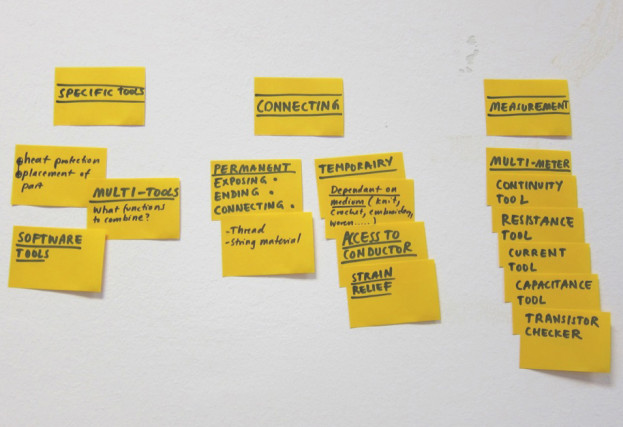 SPECIFIC TOOLS
heat protection
placement of
part
MULTI-TOOLS
What functions
to combine?
SOFTWARE
TOOLS
CONNECTING
PERMANENT
EXPOSING •
ENDING •
CONNECTING •
-Thread
-String material
TEMPORAIRY
Dependant on
medium (knit,
crochet, embroidery,
woven.....)
ACCESS TO
CONDUCTOR
STRAIN
RELIEF
MEASUREMENT
MULTI-METER
CONTINUITY
TOOL
RESISTANCE
TOOL
CURRENT
TOOL
CAPACITANCE
TOOL
TRANSISTOR
CHECKER